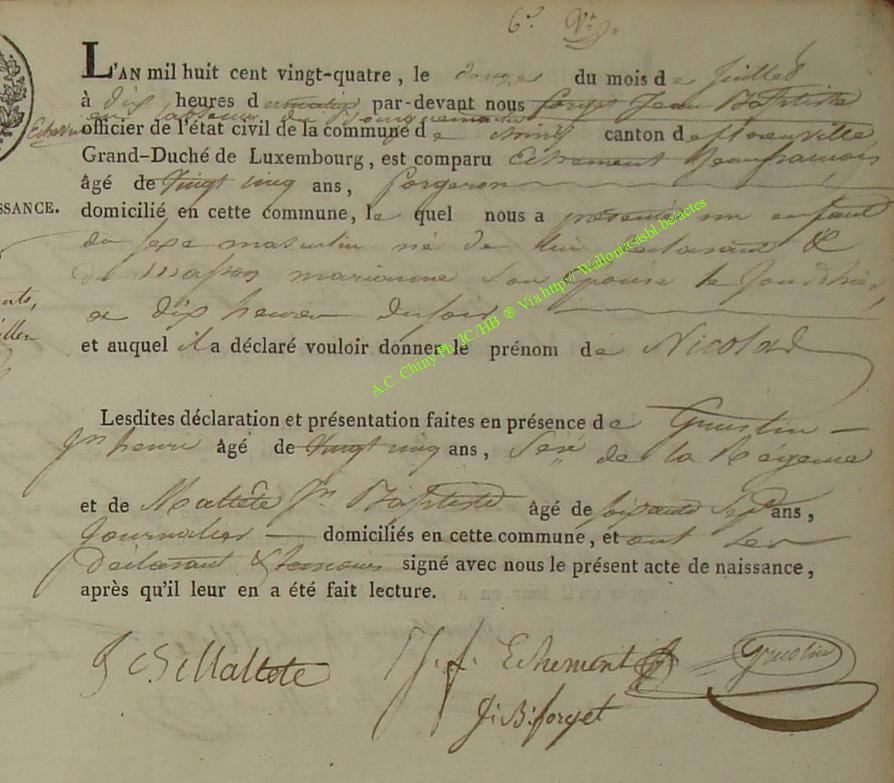 6e Vte.
L'AN mil huit cent vingt-quatre, le douze du mois de juillet
à dix heures du matin par-devant nous forget Jean Baptiste
Echevin en absence du Bourguemaitre
officier de l'état civil de la commune de chiny canton de florenville
Grand-Duché de Luxembourg, est comparu Echement Jean françois
âgé de vingt cinq ans, forgeron
SSANCE.
domicilié en cette commune, le quel nous a présenté un enfant
du sexe masculin né de lui déclarant &
de masson marianne son épouse le jour d'hier,
a dix heures du soir
et auquel il a déclaré vouloir donner le prénom de Nicolas
Lesdites déclaration et présentation faites en présence de Grustin
Jn henri âgé de vingt cinq ans, de la Regence
et de Maltête Jn Baptiste âgé de soixante sept ans,
Journalier domiciliés en cette commune, et ont les
déclarant & temoins signé avec nous le présent acte de naissance,
après qu'il leur en a été fait lecture.
Maltete J. f. Echement Grustin
J: B: forget
A.C. Chiny Ph JC/HB ® Via http:// Wallonia-asbl.be/actes